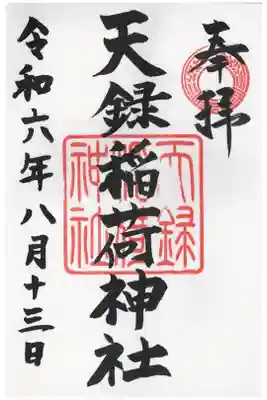 奉拝
天録稲荷神社
天録稲荷神社
令和六年八月十三日